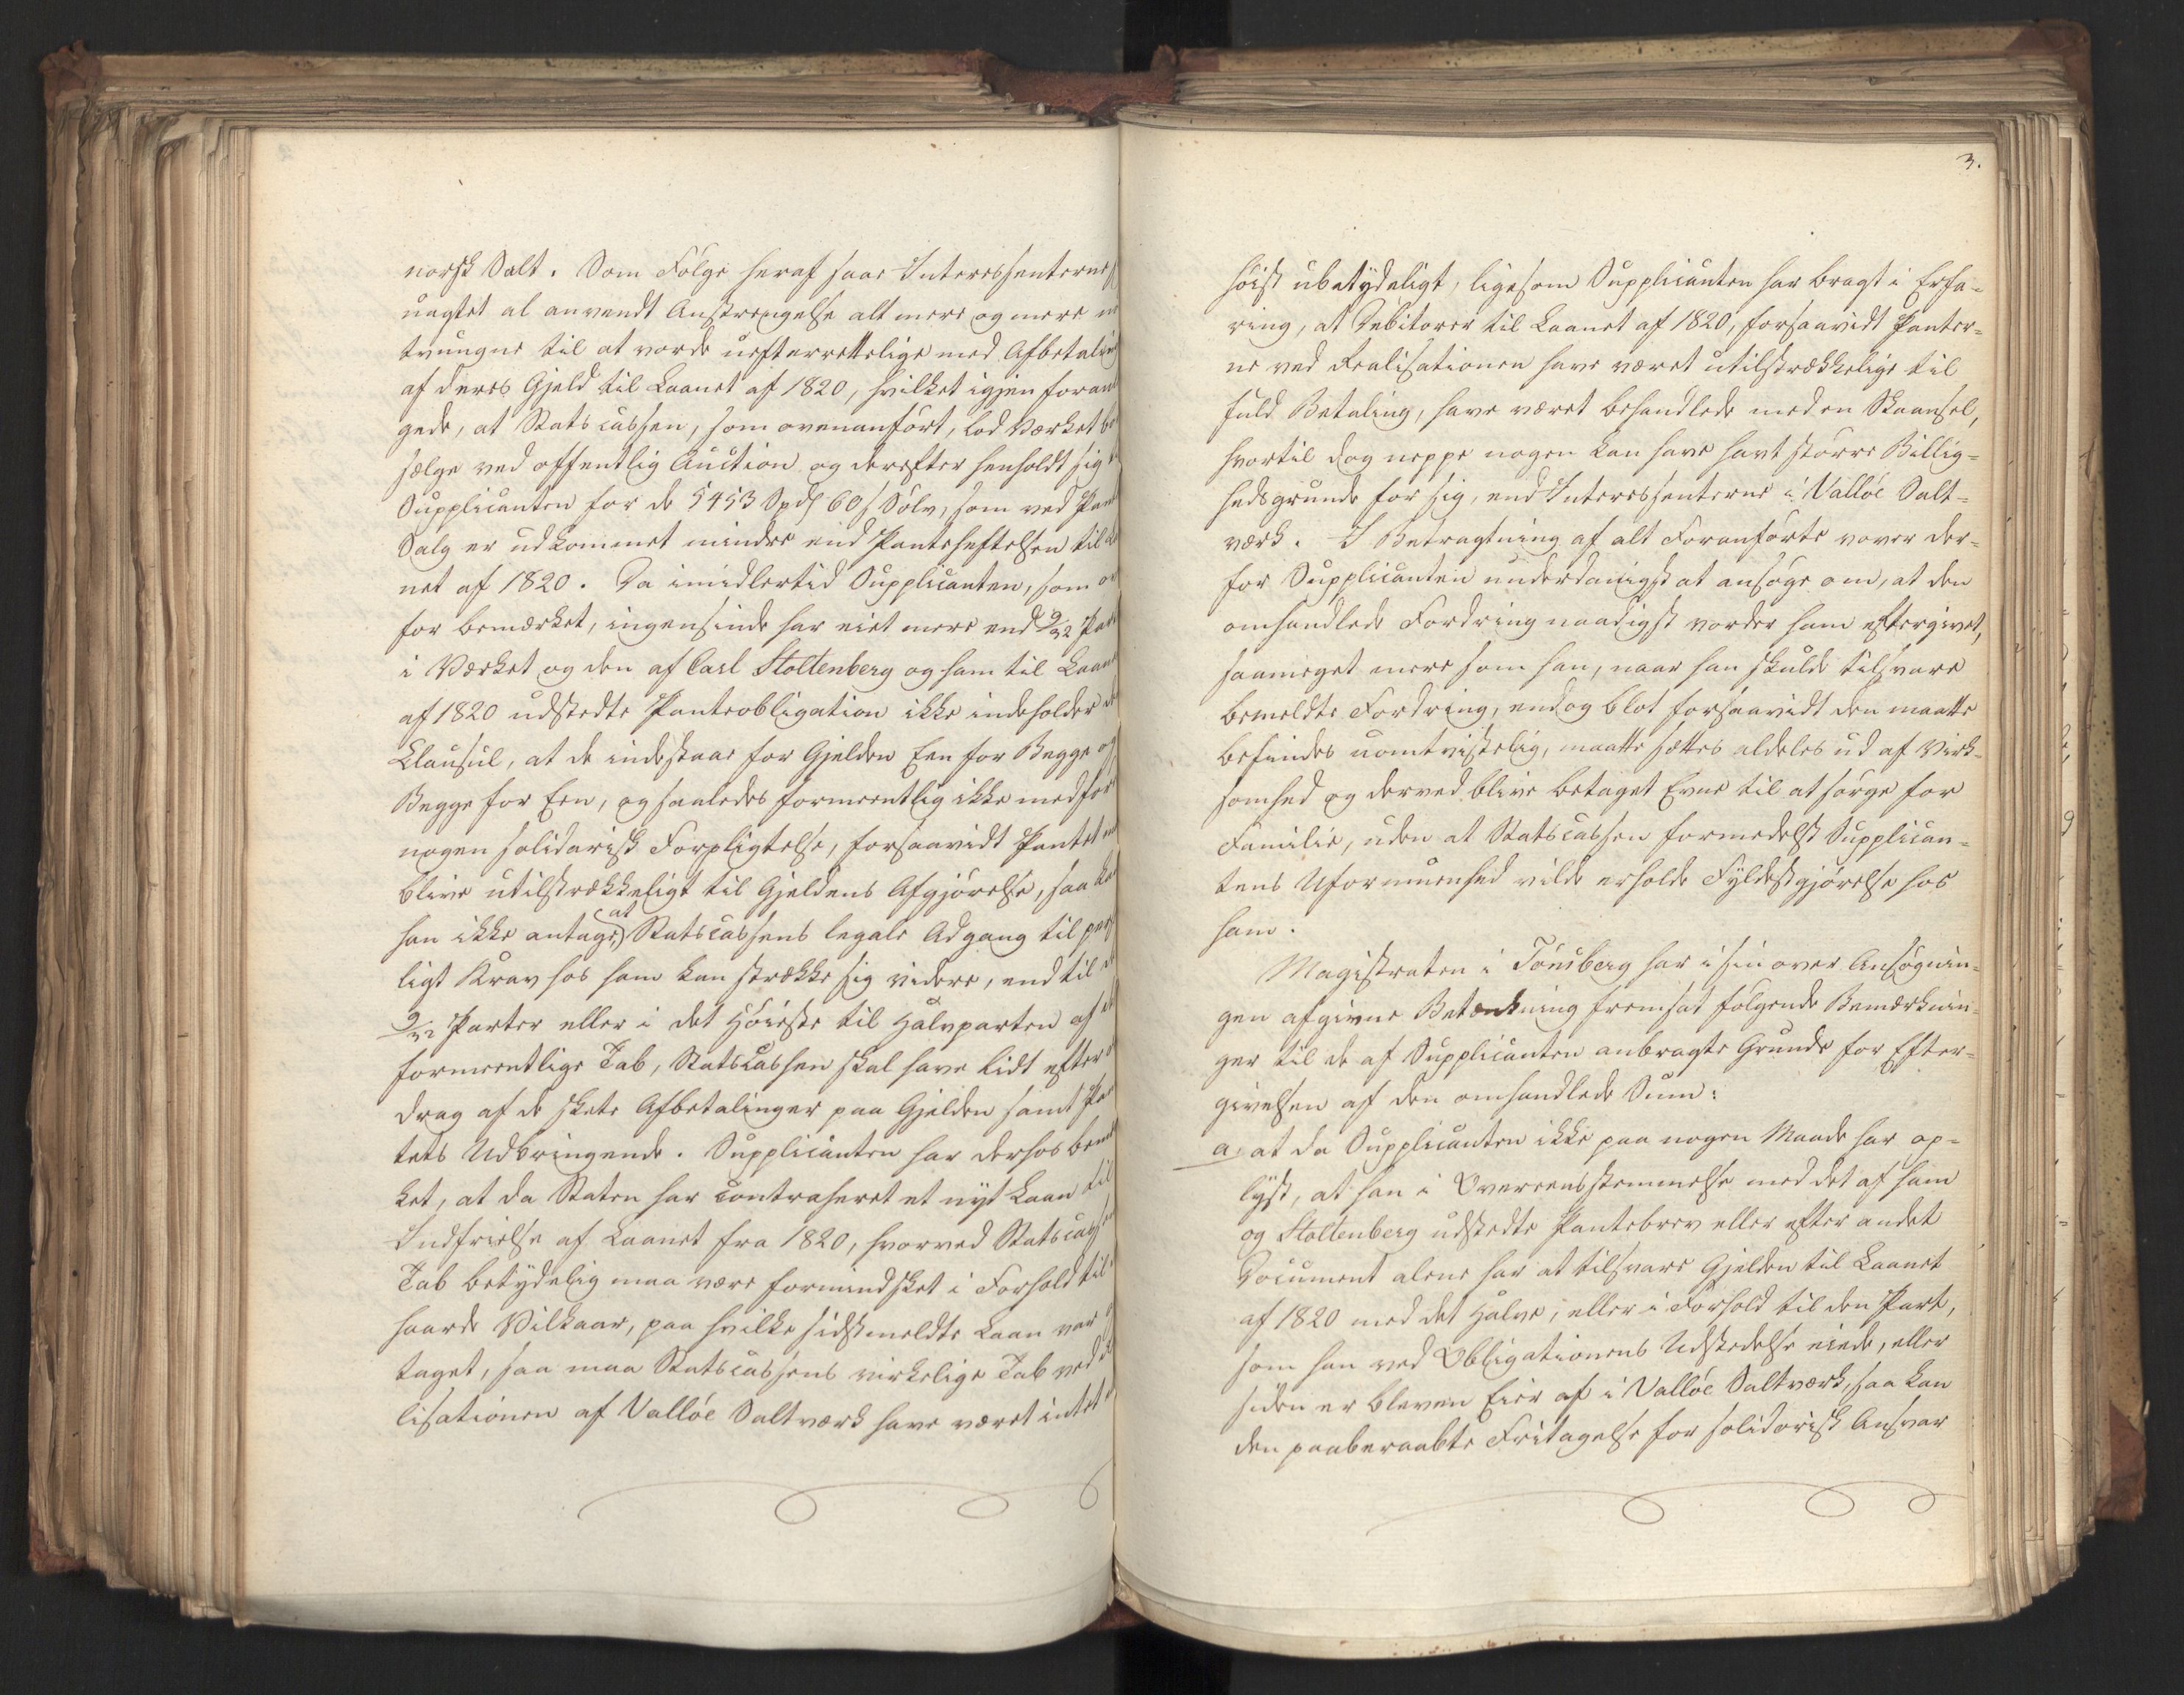 norsk Salt. Som Følge heraf saae Interessenterne
uagtet al anvendt Anstrengelse alt mere og mere
tvungne til at vorde uefterrettelige med Afbetaling
af deres Gjeld til Laanet af 1820, hvilket igjen foran
gede, at Statscassen, som ovenanført, lod Værket
sælge ved offentlig Auction og derefter henholdt sig
Supplicanten for de 5453 Spd 60 s Sølv, som ved Pan
Salg er udkommet mindre end Pantehæftelsen til
net af 1820. Da imidlertid Supplicanten, som
for bemærket, ingensinde har eiet mere end 9/32 Par
i Værket og den af Carl Stoltenberg og ham til Laan
af 1820 udstedte Panteobligation ikke indeholder
Clausul, at de indestaae for Gjelden Een for Begge og
Begge for Een, og saaledes formeentlig ikke medfør
nogen solidarisk Forpligtelse, forsaavidt Pantet
blive utilstrækkeligt til Gjeldens Afgjørelse, saa
han ikke antage, at Statscassens legale Adgang til per
ligt Krav hos ham kan strække sig videre, end til
9/32 Parter eller i det Høieste til Halvparten af
formeentlige Tab, Statscassen skal have lidt efter
drag af de skete Afbetalinger paa Gjelden samt Pan
tets Udbringende. Supplicanten har derhos bemær
ket, at da Staten har contraheret et nyt Laan til
Indfrielse af Laanet fra 1820, hvorved Statscas
Tab betydelig maa være formindsket i Forhold til
haarde Vilkaar, paa hvilke sidstmeldte Laan var
taget, saa maa Statscassens virkelige Tab ved
lisationen af Valløe Saltværk have været intet
3.
høist ubetydeligt, ligesom Supplicanten har bragt i Erfa=
ring, at Debitorer til Laanet af 1820, forsaavidt Panter=
ne ved Realisationen have været utilstrækkelige til
fuld Betaling, have været behandlede med en Skaansel,
hvortil dog neppe nogen kan have havt større Billig=
hedsgrunde for sig, end Interessenterne i Valløe Salt=
værk. I Betragtning af alt Foranførte vover der=
for Supplicanten underdanigst at ansøge om, at den
omhandlede Fordring naadigst vorder ham eftergivet,
saameget mere som han, naar han skulde tilsvare
bemeldte Fordring, endog blot forsaavidt den maatte
befindes uomtvistelig, maatte sættes aldeles ud af Virk=
somhed og derved blive betaget Evne til at sørge for
Familie, uden at Statscassen formedelst Supplican=
tens Uformuenhed vilde erholde Fyldestgjørelse hos
ham.
Magistraten i Tønsberg har i sin over Ansøgnin=
gen afgivne Betænkning fremsat følgende Bemærknin=
ger til de af Supplicanten anbragte Grunde for Efter=
givelsen af den omhandlede Sum:
a, at da Supplicanten ikke paa nogen Maade har op=
lyst, at han i Overeensstemmelse med det af ham
og Stoltenberg udstedte Pantebrev eller efter andet
Document alene har at tilsvare Gjelden til Laanet
af 1820 med det Halve, eller i Forhold til den Part,
som han ved Obligationens Udstedelse eiede, eller
siden er bleven Eier af i Valløe Saltværk, saa kan
den paaberaabte Fritagelse for solidarisk Ansvar